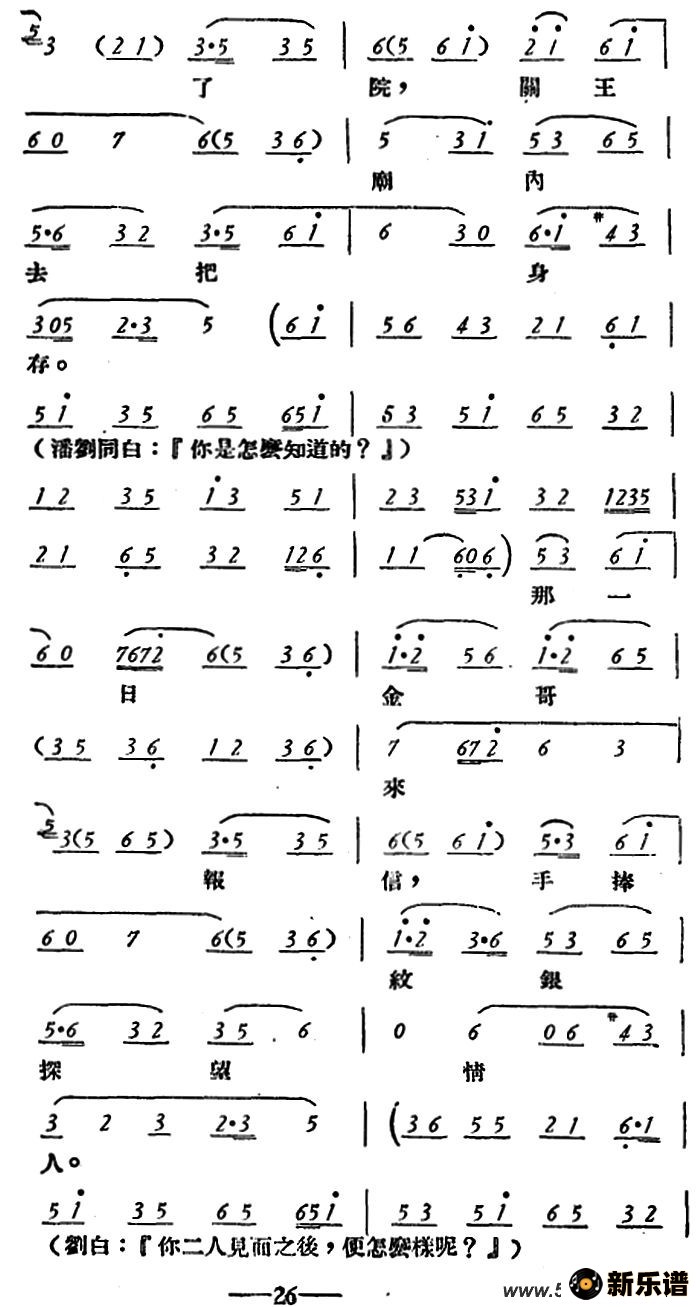 5 3 (2 1) 3·5 3 5 | 6(5 6 i) 2 i 6 i |
了 院， 關 王
6 0 7 6(5 3 6) | 5 3 i 5 3 6 5 |
廟 內
5·6 3 2 3·5 6 i | 6 3 0 6·i #4 3 |
去 把 身
3 05 2·3 5 (6 i | 5 6 4 3 2 1 6 1 |
存。
5 i 3 5 6 5 65 i | 5 3 5 i 6 5 3 2 |
（潘劉同白：『你是怎麼知道的？』）
1 2 3 5 i 3 5 1 | 2 3 53 i 3 2 1235 |
2 1 6 5 3 2 12 6 | 1 1 606) 5 3 6 i |
那 一
6 0 7672 6(5 3 6) | i·2 5 6 i·2 6 5 |
日 金 哥
(3 5 3 6 1 2 3 6) | 7 67 2 6 3 |
來
5 3(5 6 5) 3·5 3 5 | 6(5 6 i) 5·3 6 i |
報 信， 手 捧
6 0 7 6(5 3 6) | i·2 3·6 5 3 6 5 |
紋 銀
5·6 3 2 3 5 6 | 0 6 0 6 #4 3 |
探 望 情
3 2 3 2·3 5 | (3 6 5 5 2 1 6·1 |
人。
5 i 3 5 6 5 65 i | 5 3 5 i 6 5 3 2 |
（劉白：『你二人見面之後，便怎麼樣呢？』）
—26—
www.5
新乐谱